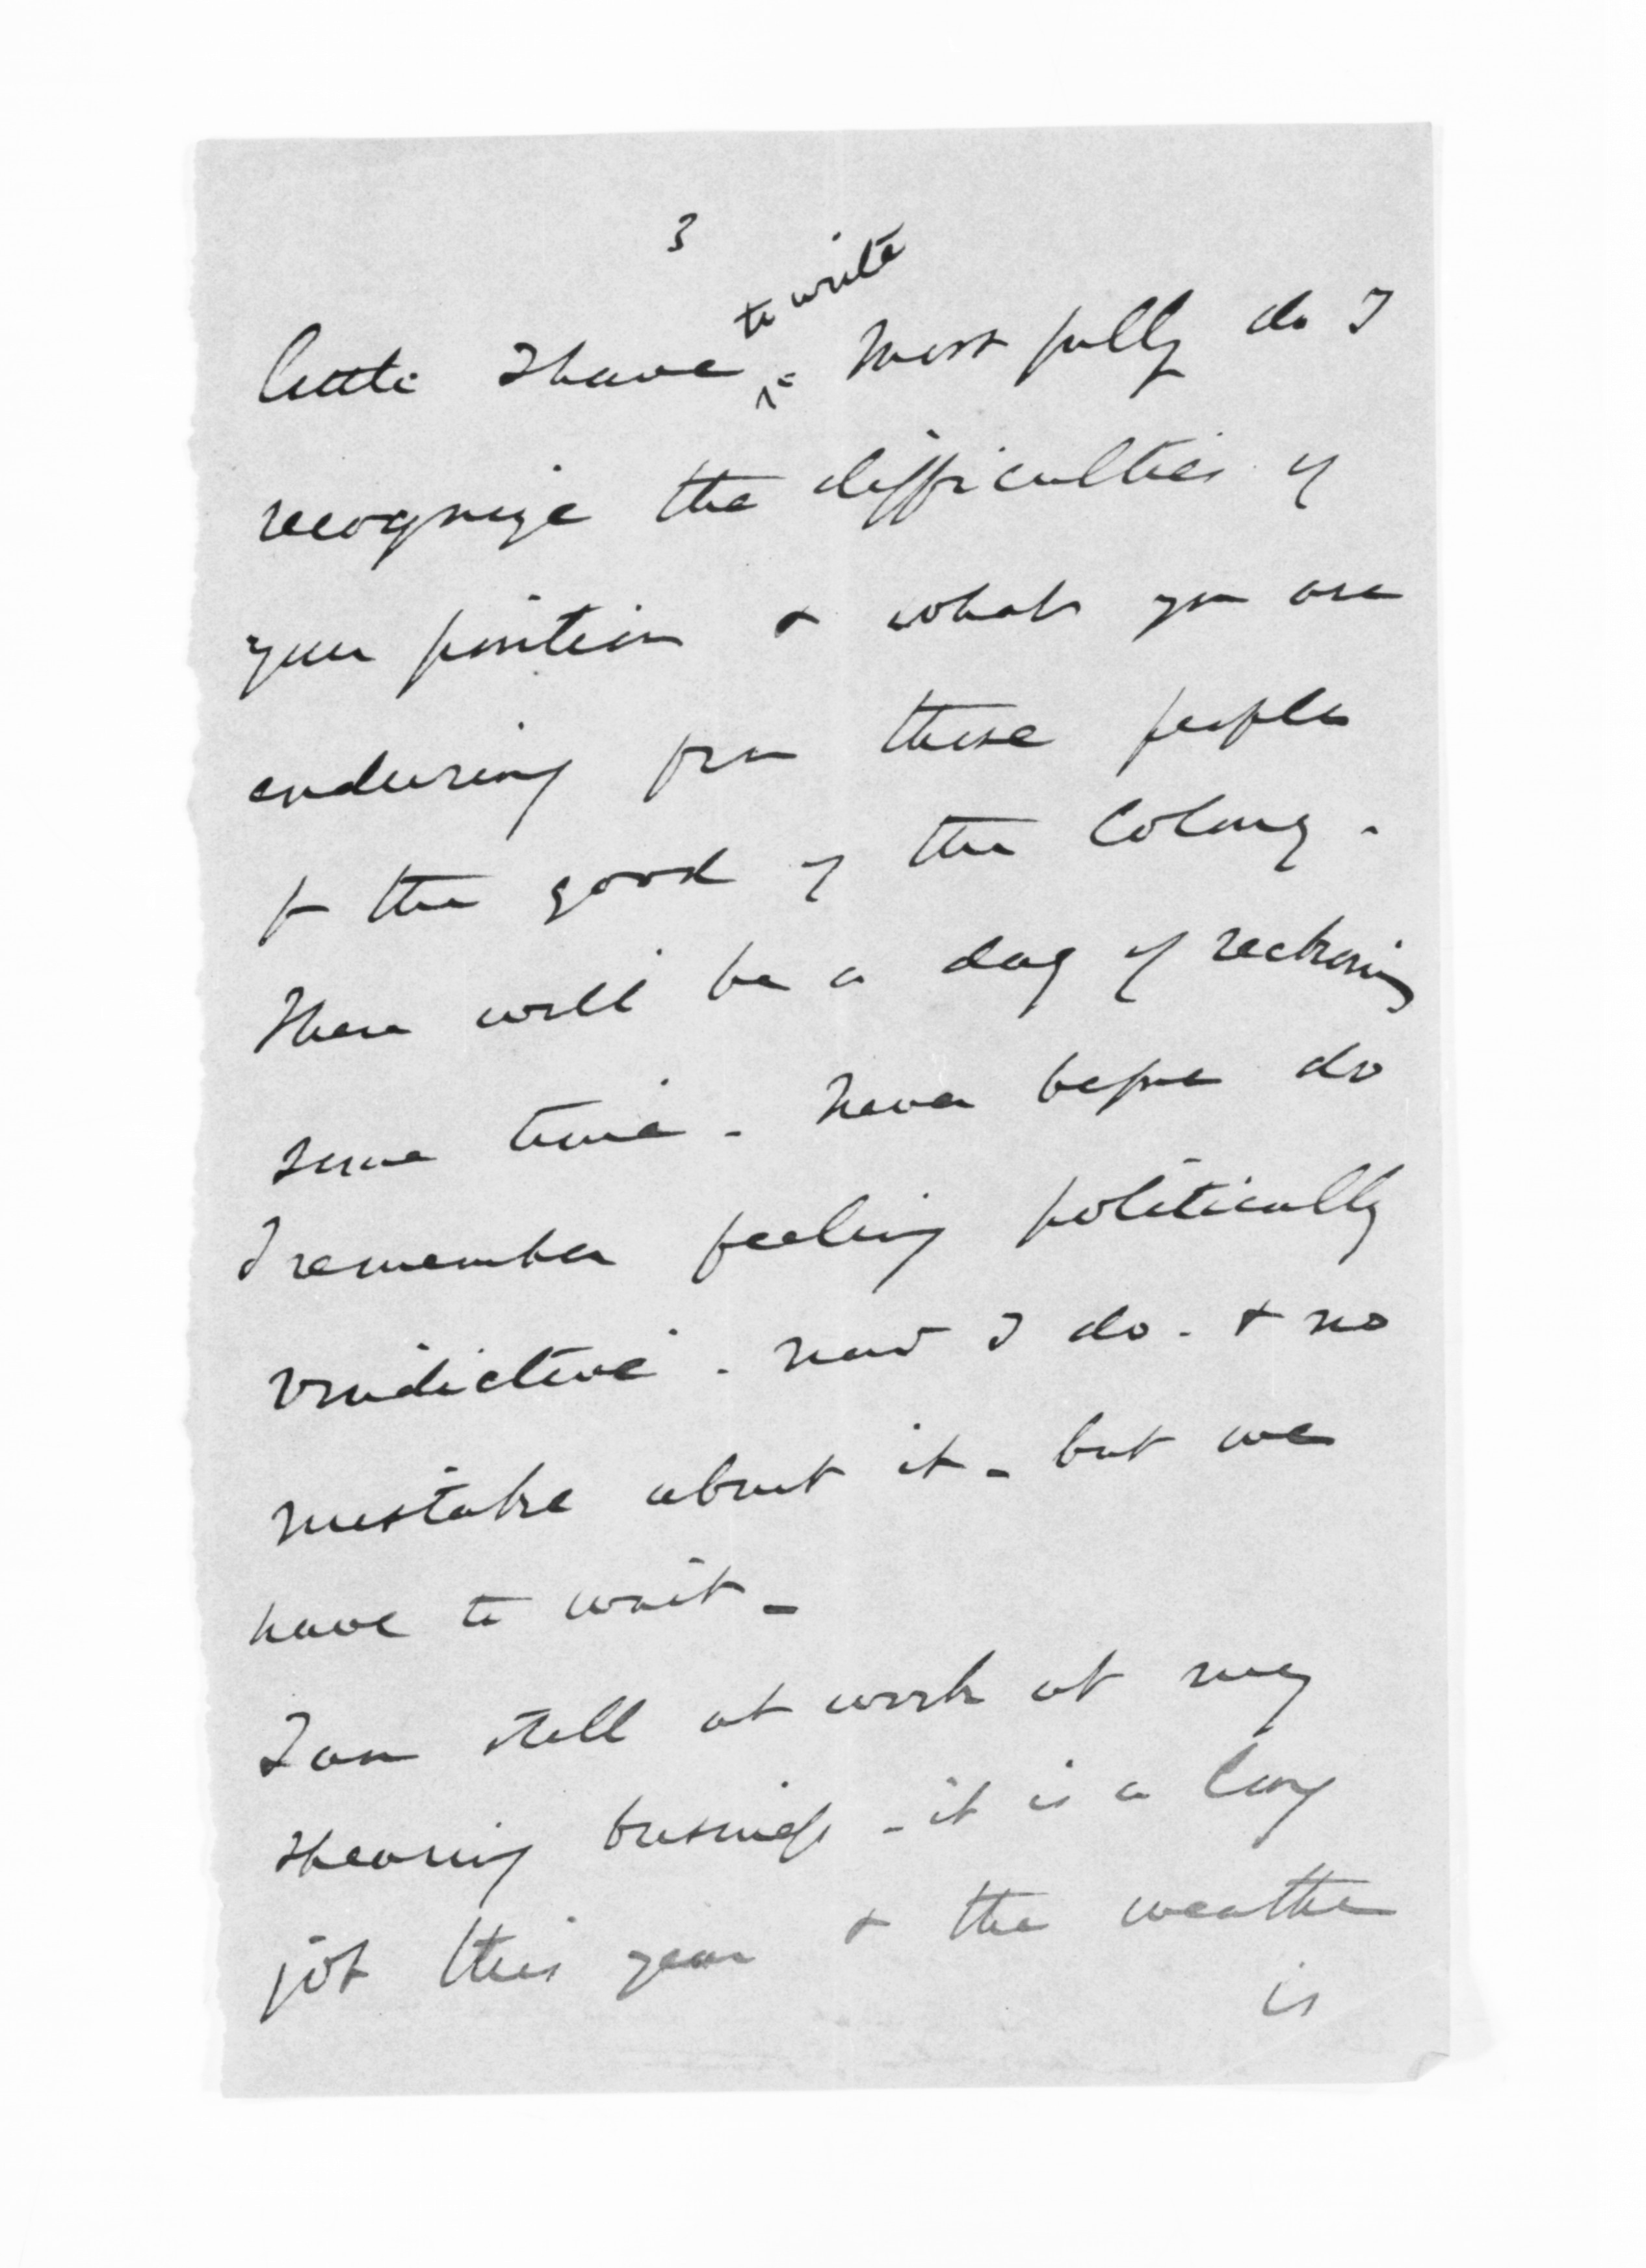 3
to write
little I have ^. Most fully do I
recognize the difficulties of
your position & what you are
enduring from these people
for the good of the Colony.
There will be a day of reckoning
some time - Never before do
I remember feeling politically
vindictive. Now I do - & no
mistake about it - but we
have to wait -
I am still at work at my
shearing business - it is a long
job this year & the weather
is